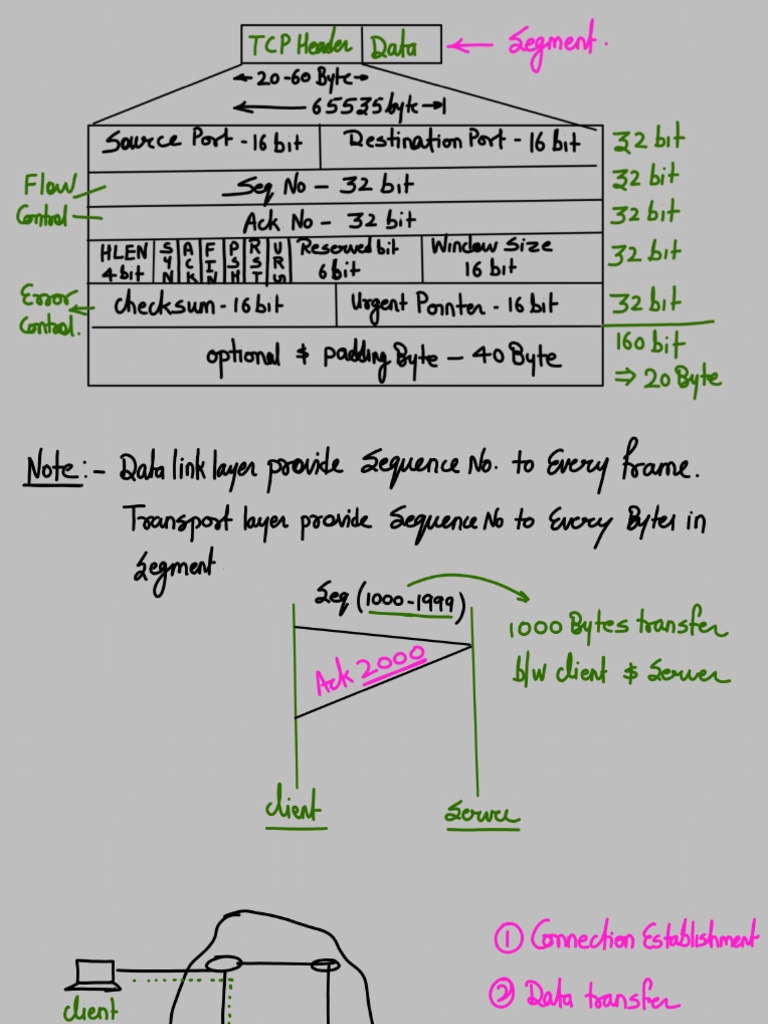 TCP Header Data ← Segment.
20-60 Byte
65535 byte
Source Port - 16 bit Destination Port - 16 bit 32 bit
Flow Control
Seq No - 32 bit 32 bit
Ack No - 32 bit 32 bit
HLEN 4 bit SYN ACK FIN PSH RST URG Reserved bit 6 bit Window Size 16 bit 32 bit
Error Control.
checksum - 16 bit Urgent Pointer - 16 bit 32 bit
optional & padding Byte - 40 Byte
160 bit
⇒ 20 Byte
Note:- Data link layer provide Sequence No. to Every frame.
Transport layer provide Sequence No to Every Bytes in
Segment
Seq (1000-1999)
1000 Bytes transfer
b/w client & Server
Ack 2000
client Server
① Connection Establishment
② Data transfer
client